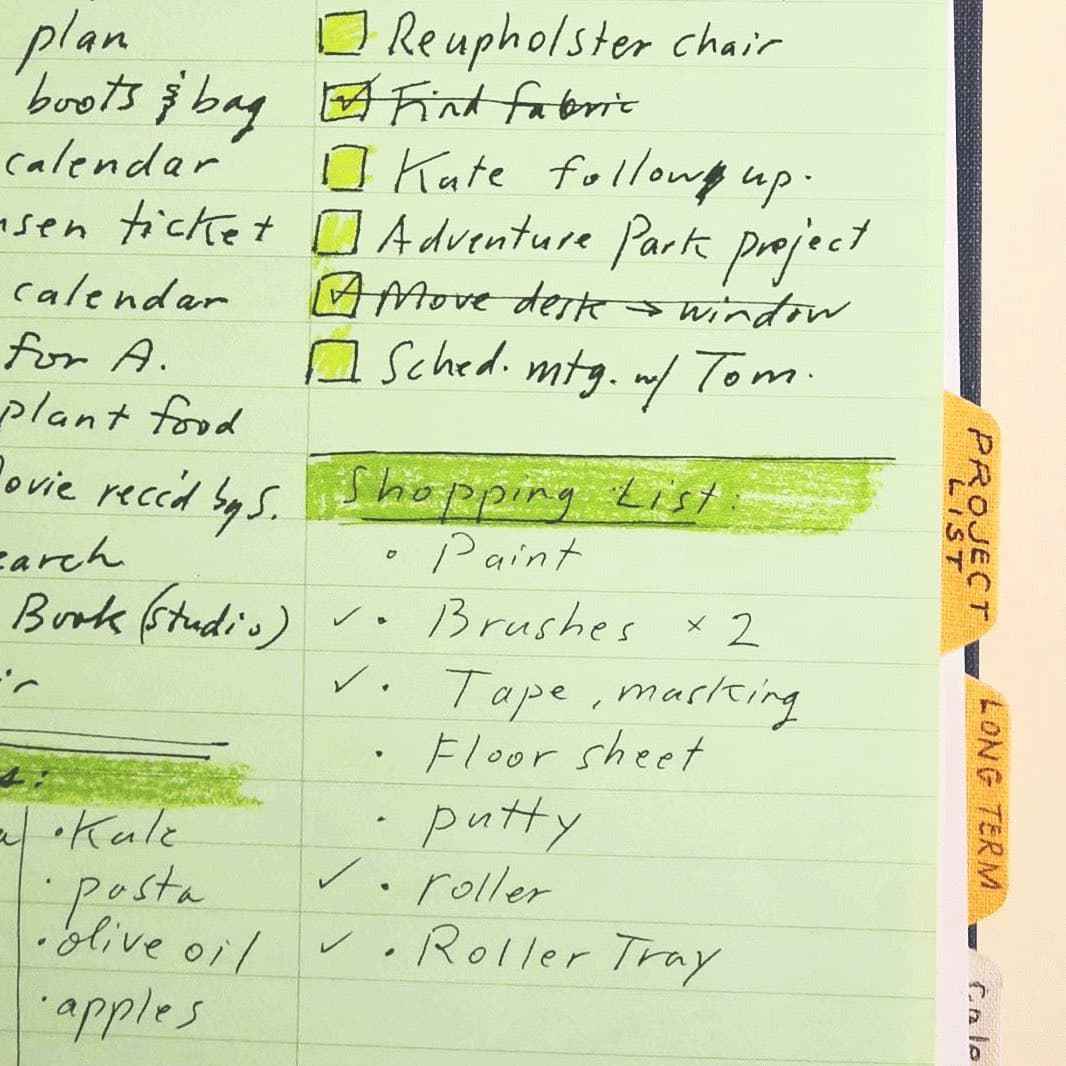 plan
boots & bag
calendar
ticket
calendar
for A.
plant food
recc'd by S.
Book (studio)
• Kale
• pasta
• olive oil
• apples
Reupholster chair
Find fabric
Kate follow up.
Adventure Park project
Move desk → window
Sched. mtg. w/ Tom.
Shopping List:
• Paint
✓ • Brushes × 2
✓ • Tape, masking
• Floor sheet
• putty
✓ • roller
✓ • Roller Tray
PROJECT
LIST
LONG TERM